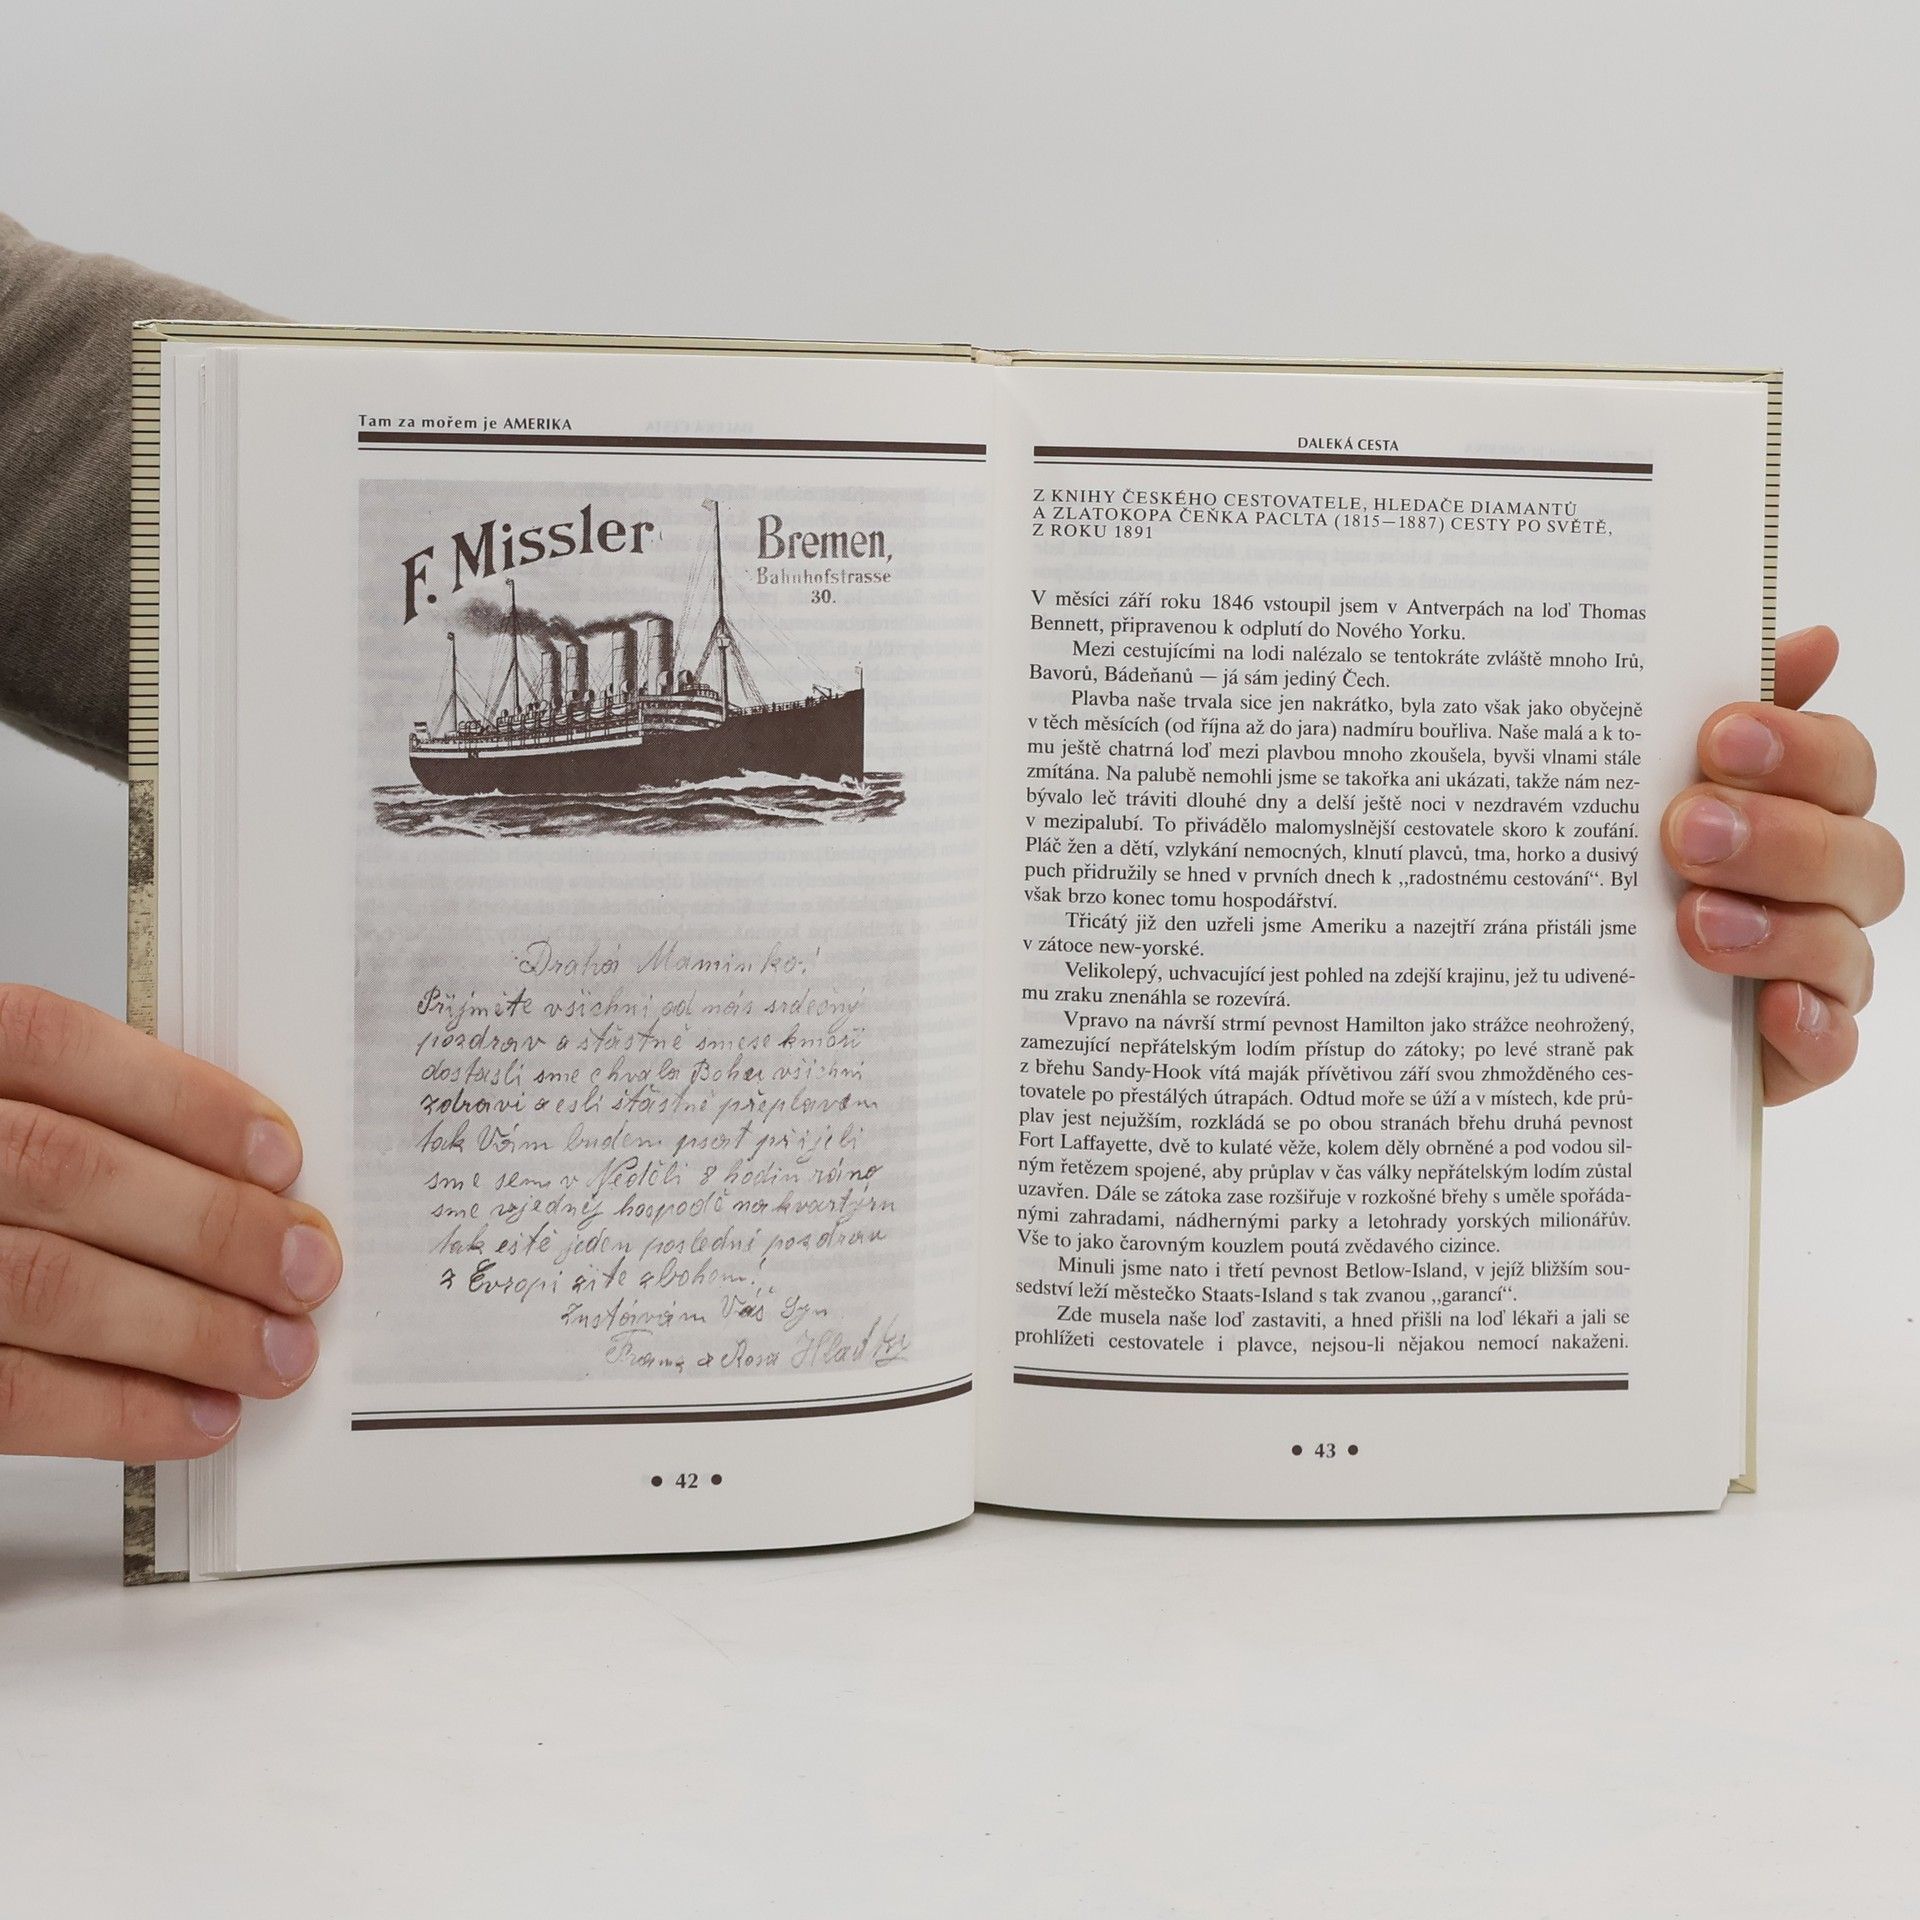 Tam za mořem je AMERIKA
F. Missler
Bremen,
Bahnhofstrasse
30.
Drahá Maminko!
Přijměte všichni od nás srdečný
pozdrav a štástně smese kmoři
dostasli sme chvala Bohu všichni
zdravi a esli štástně přeplavem
tak Vám budem psat přijeli
sme sem v Neděli 8 hodin ráno
sme vjednéj hospodě na kvartýru
tak eště jeden posledni pozdrav
z Evropi žite zbohem!
Zustávám Váš Syn
a Rosa
42
DALEKÁ CESTA
Z KNIHY ČESKÉHO CESTOVATELE, HLEDAČE DIAMANTŮ
A ZLATOKOPA ČEŇKA PACLTA (1815—1887) CESTY PO SVĚTĚ,
Z ROKU 1891
V měsíci září roku 1846 vstoupil jsem v Antverpách na loď Thomas
Bennett, připravenou k odplutí do Nového Yorku.
Mezi cestujícími na lodi nalézalo se tentokráte zvláště mnoho Irů,
Bavorů, Bádeňanů — já sám jediný Čech.
Plavba naše trvala sice jen nakrátko, byla zato však jako obyčejně
v těch měsících (od října až do jara) nadmíru bouřliva. Naše malá a k to-
mu ještě chatrná loď mezi plavbou mnoho zkoušela, byvši vlnami stále
zmítána. Na palubě nemohli jsme se takořka ani ukázati, takže nám nez-
bývalo leč tráviti dlouhé dny a delší ještě noci v nezdravém vzduchu
v mezipalubí. To přivádělo malomyslnější cestovatele skoro k zoufání.
Pláč žen a dětí, vzlykání nemocných, klnutí plavců, tma, horko a dusivý
puch přidružily se hned v prvních dnech k „radostnému cestování“. Byl
však brzo konec tomu hospodářství.
Třicátý již den uzřeli jsme Ameriku a nazejtří zrána přistáli jsme
v zátoce new-yorské.
Velikolepý, uchvacující jest pohled na zdejší krajinu, jež tu udivené-
mu zraku znenáhla se rozevírá.
Vpravo na návrší strmí pevnost Hamilton jako strážce neohrožený,
zamezující nepřátelským lodím přístup do zátoky; po levé straně pak
z břehu Sandy-Hook vítá maják přívětivou září svou zhmožděného ces-
tovatele po přestálých útrapách. Odtud moře se úží a v místech, kde prů-
plav jest nejužším, rozkládá se po obou stranách břehu druhá pevnost
Fort Laffayette, dvě to kulaté věže, kolem děly obrněné a pod vodou sil-
ným řetězem spojené, aby průplav v čas války nepřátelským lodím zůstal
uzavřen. Dále se zátoka zase rozšiřuje v rozkošné břehy s uměle spořáda-
nými zahradami, nádhernými parky a letohrady yorských milionářův.
Vše to jako čarovným kouzlem poutá zvědavého cizince.
Minuli jsme nato i třetí pevnost Betlow-Island, v jejíž bližším sou-
sedství leží městečko Staats-Island s tak zvanou „garancí“.
Zde musela naše loď zastaviti, a hned přišli na loď lékaři a jali se
prohlížeti cestovatele i plavce, nejsou-li nějakou nemocí nakaženi.
43